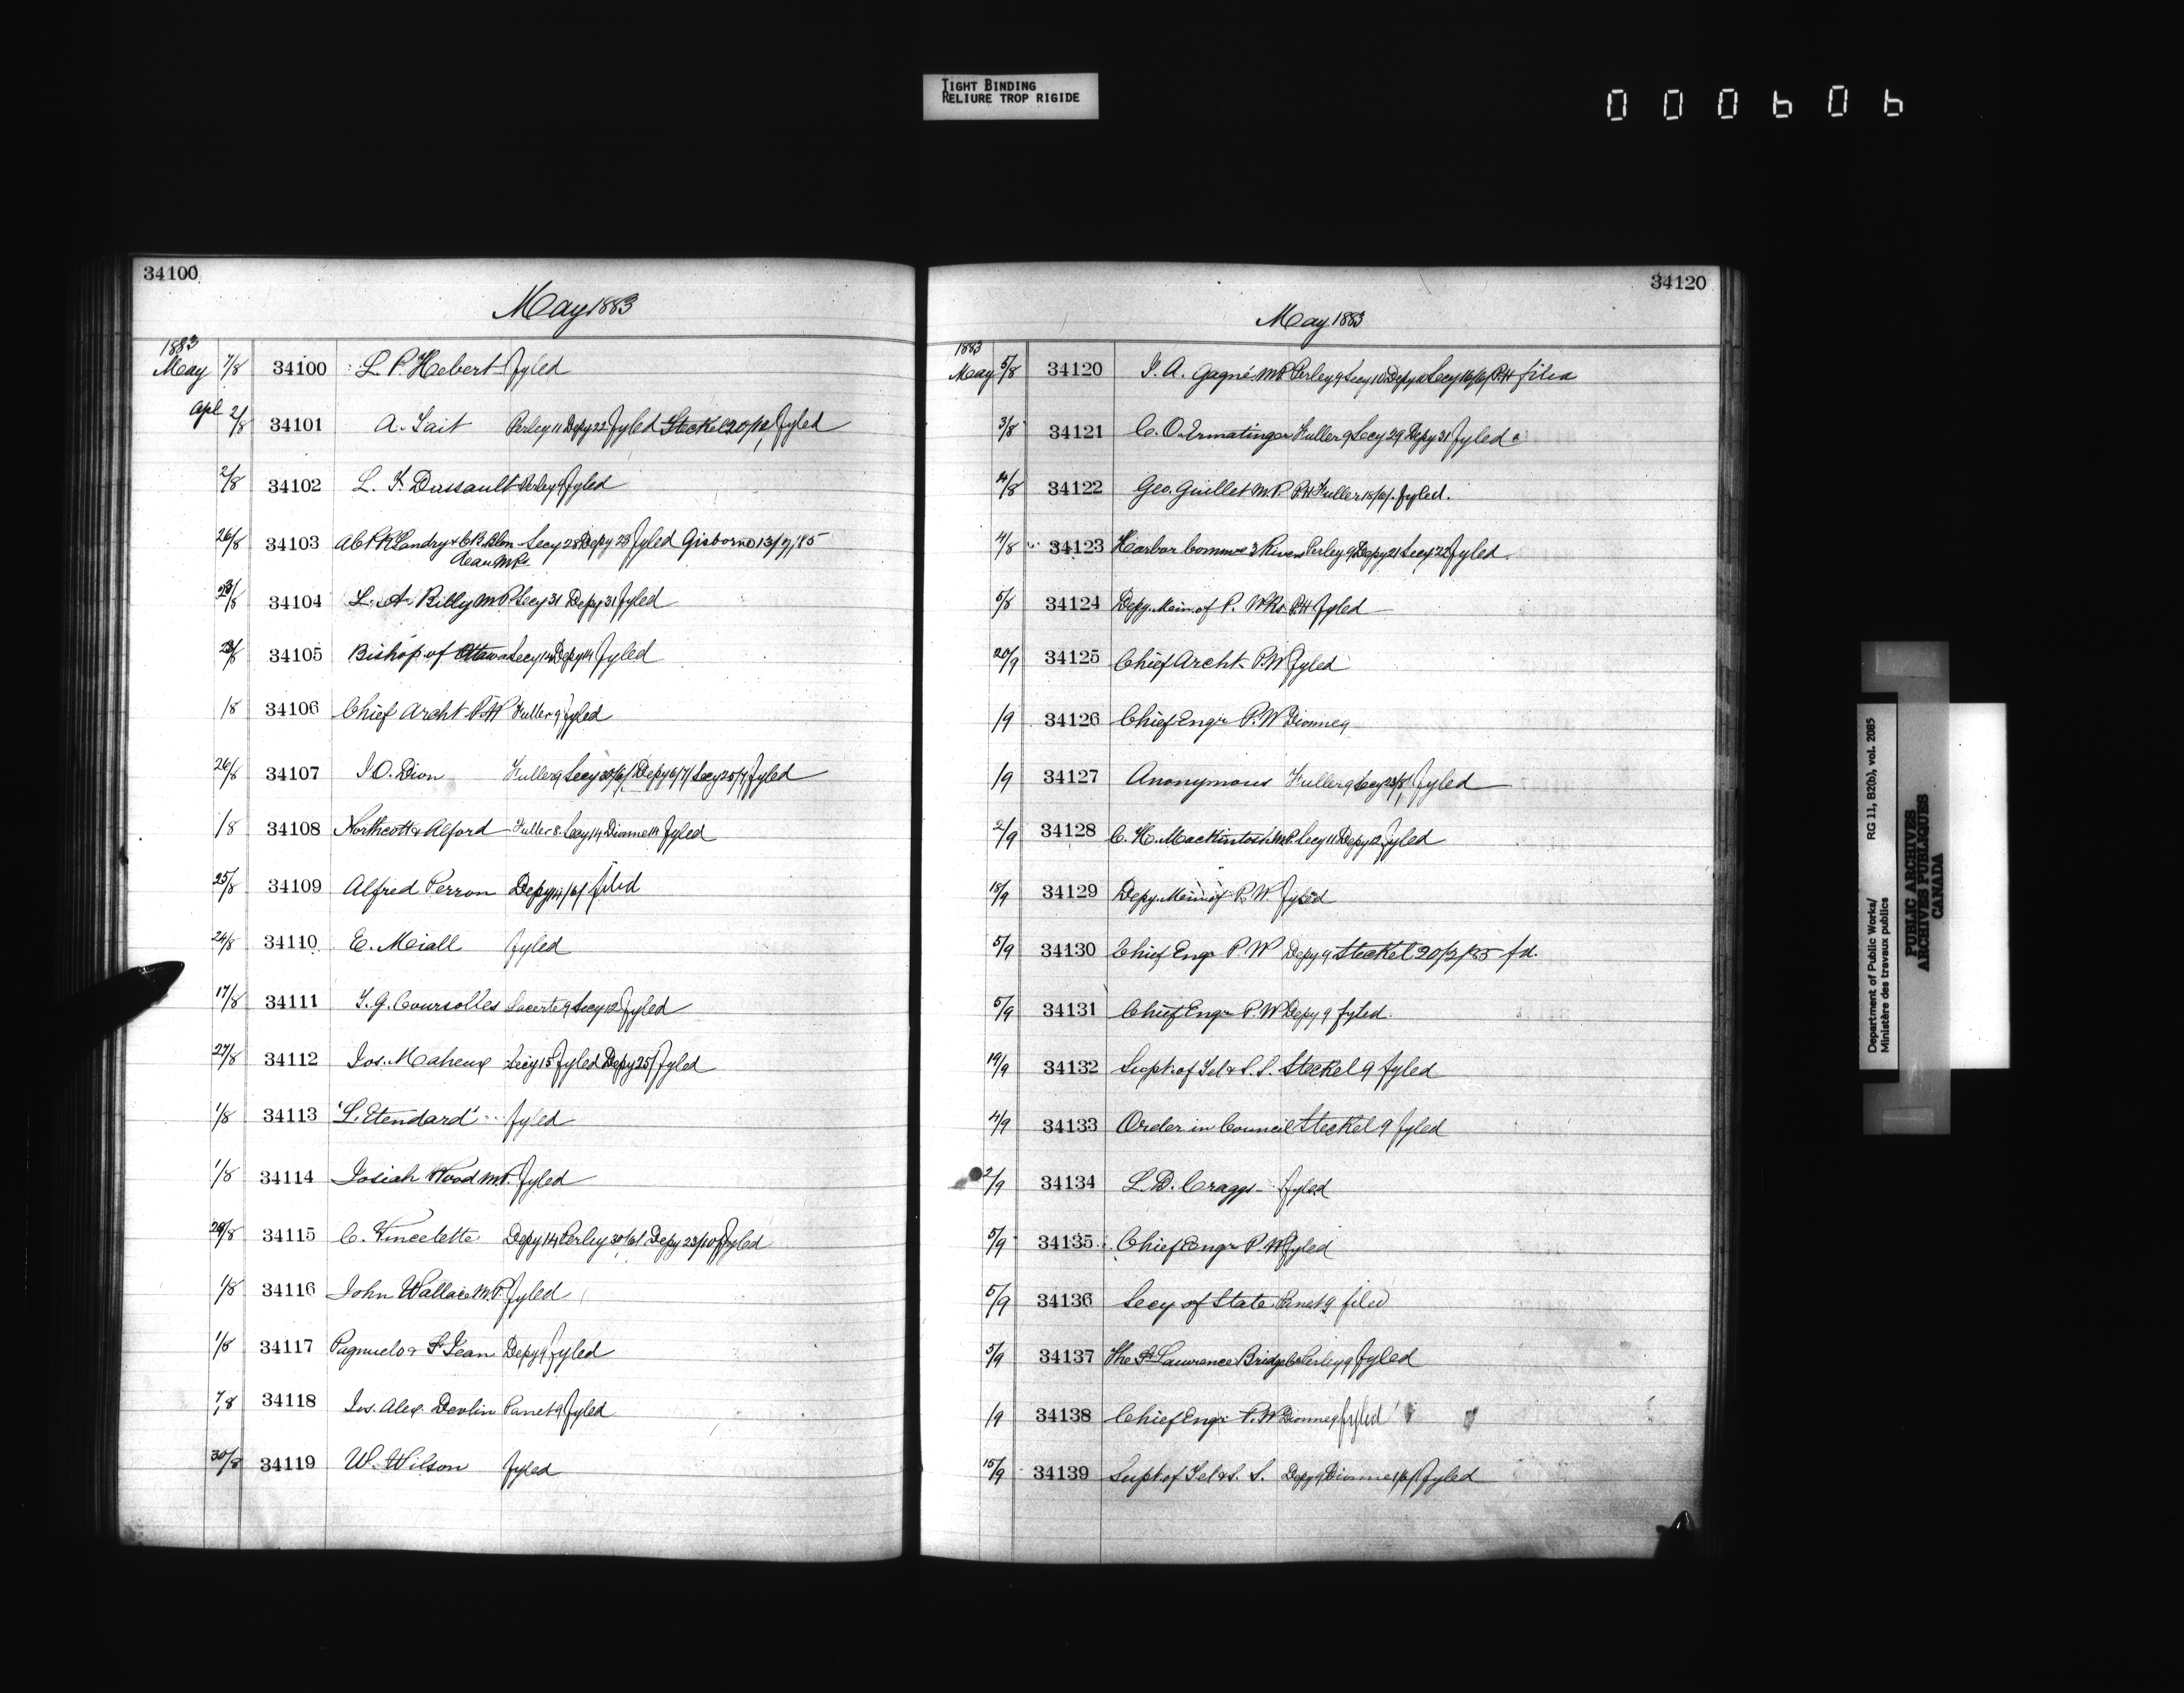 TIGHT BINDING
RELIURE TROP RIGIDE
000606
34100
May 1883
1883
May 7/8 34100 L. P. Hebert fyled
Apl 2/8 34101 A. Tait Perley 11 Depy 22 fyled Steckel 20/12/ fyled
2/8 34102 L. F. Dussault Perley 9 fyled
26/8 34103 Secy 28 Depy 28 fyled Gisborne 13/7/85
34104 L. A. Billy M.P. Secy 31 Depy 31 fyled
34105 Bishop of Ottawa Secy 14 Depy 14 fyled
/8 34106 Chief Archt P.W Fuller 9 fyled
26/8 34107 J. O. Dion Fuller 9 Secy 30/6/ Depy 6/7/ Secy 25/7/ fyled
/8 34108 Northcott & Alford Fuller 8 Secy 14 Dionne 14 fyled
25/8 34109 Alfred Perron Depy 14/6/ filed
24/8 34110 E. Miall fyled
17/8 34111 J. G. Coursolles Lacerte 9 Secy 12 fyled
27/8 34112 Jos. Maheux Secy 15 fyled Depy 25/ fyled
1/8 34113 'L. Etendard' fyled
1/8 34114 Josiah Wood M.P. fyled
34115 C. Vincelette Depy 14 Perley 30/6/ Depy 23/10/ fyled
1/8 34116 John Wallace M.P. fyled
1/8 34117 Pagnuelo & St Jean Depy 9 fyled
7/8 34118 Jos. Alex. Devlin Panet 9 fyled
30/8 34119 W. Wilson fyled
34120
May 1883
1883
May 5/8 34120 J. A. Gagné M.P. Perley 9 Secy 10 Depy Secy 16/6/ P.H filed
3/8 34121 C. O. Ermatinger Fuller 9 Secy 29 Depy 31 fyled
4/8 34122 Geo. Guillet M.P. P.H Fuller 18/6/. fyled.
4/8 34123 Harbor Commrs 3 Rivers Perley 9 Depy 21 Secy 22 fyled.
5/8 34124 Depy. Min. of P. Wks P.H fyled
20/9 34125 Chief Archt. P.W fyled
/9 34126 Chief Engr P.W Dionne 9
/9 34127 Anonymous Fuller 9 Secy fyled
2/9 34128 C. H. Mackintosh M.P. Secy 11 Depy 12 fyled
18/9 34129 Depy. Min of P. W. fyled
5/9 34130 Chief Engr P. W Depy 9 Steckel 20/2/85 fd.
5/9 34131 Chief Engr P.W Depy 9 fyled.
19/9 34132 Supt. of Tel & S. S. Steckel 9 fyled
4/9 34133 Order in Council Steckel 9 fyled
2/9 34134 L. D. Craggs fyled
5/9 34135 Chief Engr P. W fyled
5/9 34136 Secy of State Panet 9 filed
5/9 34137 The St Lawrence Bridge Co Perley 9 fyled
/9 34138 Chief Engr P.W Dionne 9 fyled
15/9 34139 Supt of Tel & S. S. Depy 9 Dionne 1/6/ fyled
Department of Public Works/ RG 11, B2(b), vol. 2085
Ministère des travaux publics
PUBLIC ARCHIVES
ARCHIVES PUBLIQUES
CANADA